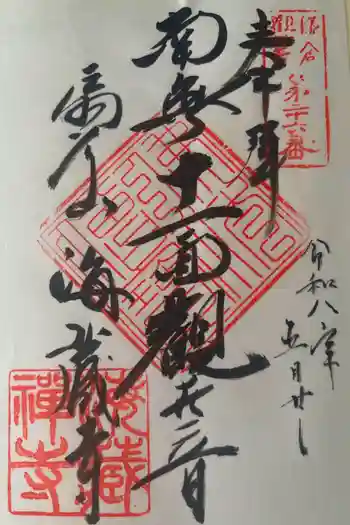 鎌倉
観音
第二十六番
奉拝
令和八年
五月廿
南無十一面觀世音
扇谷山
海蔵寺
海藏
禪寺